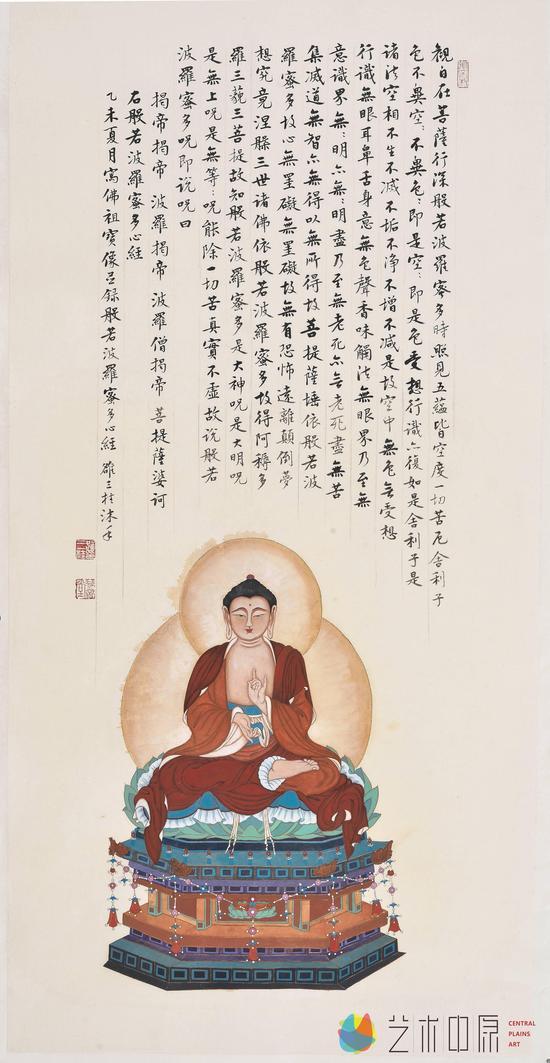 観自在菩薩行深般若波羅蜜多時照見五蘊皆空度一切苦厄舍利子
色不異空:不異色:即是空:即是色受想行識亦復如是舍利子是
諸法空相不生不滅不垢不净不增不減是故空中無色無受想
行識無眼耳鼻舌身意無色聲香味觸法無眼界乃至無
意識界無:明亦無:明盡乃至無老死亦無老死盡無苦
集滅道無智亦無得以無所得故菩提薩埵依般若波
羅蜜多故心無罣礙無罣礙故無有恐怖遠離顛倒夢
想究竟涅槃三世諸佛依般若波羅蜜多故得阿耨多
羅三藐三菩提故知般若波羅蜜多是大神呪是大明呪
是無上呪是無等:呪能除一切苦真實不虛故説般若
波羅蜜多呪即説呪曰
揭帝揭帝 波羅揭帝 波羅僧揭帝 菩提薩婆訶
右般若波羅蜜多心經
乙未夏月寫佛祖寶像并録般若波羅蜜多心經 三桂沐手
艺术中原
CENTRAL
PLAINS
ART